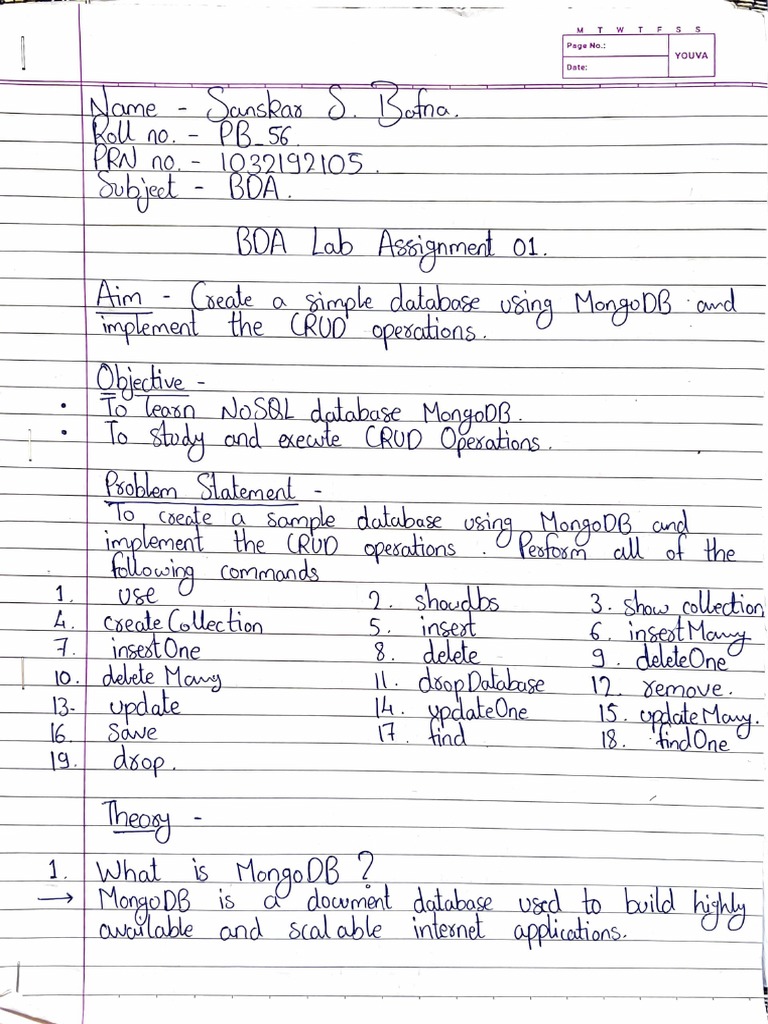 M T W T F S S
Page No.:
Date:
YOUVA
Name - Sanskar S. Bafna.
Roll no. - PB_56
PRN no. - 1032192105.
Subject - BDA.
BDA Lab Assignment 01.
Aim - Create a simple database using MongoDB and
implement the CRUD operations.
Objective -
• To learn NoSQL database MongoDB.
• To study and execute CRUD Operations.
Problem Statement -
To create a sample database using MongoDB and
implement the CRUD operations. Perform all of the
following commands
1. use 2. showdbs 3. show collection
4. createCollection 5. insert 6. insertMany
7. insertOne 8. delete 9. deleteOne
10. delete Many 11. dropDatabase 12. remove.
13. update 14. updateOne 15. updateMany.
16. save 17. find 18. findOne
19. drop.
Theory -
1. What is MongoDB?
→ MongoDB is a document database used to build highly
available and scalable internet applications.